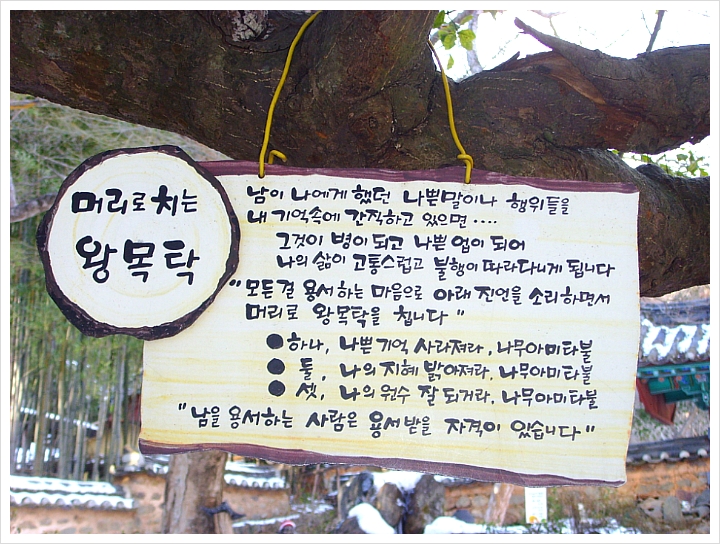 머리로 치는
왕목탁
남이 나에게 했던 나쁜말이나 행위들을
내 기억속에 간직하고 있으면....
그것이 병이 되고 나쁜 업이 되어
나의 삶이 고통스럽고 불행이 따라다니게 됩니다
"모든걸 용서하는 마음으로 아래 진언을 소리하면서
머리로 왕목탁을 칩니다"
●하나, 나쁜 기억 사라져라, 나무아미타불
● 둘, 나의 지혜 밝아져라, 나무아미타불
● 셋, 나의 원수 잘 되거라, 나무아미타불
"남을 용서하는 사람은 용서받을 자격이 있습니다"